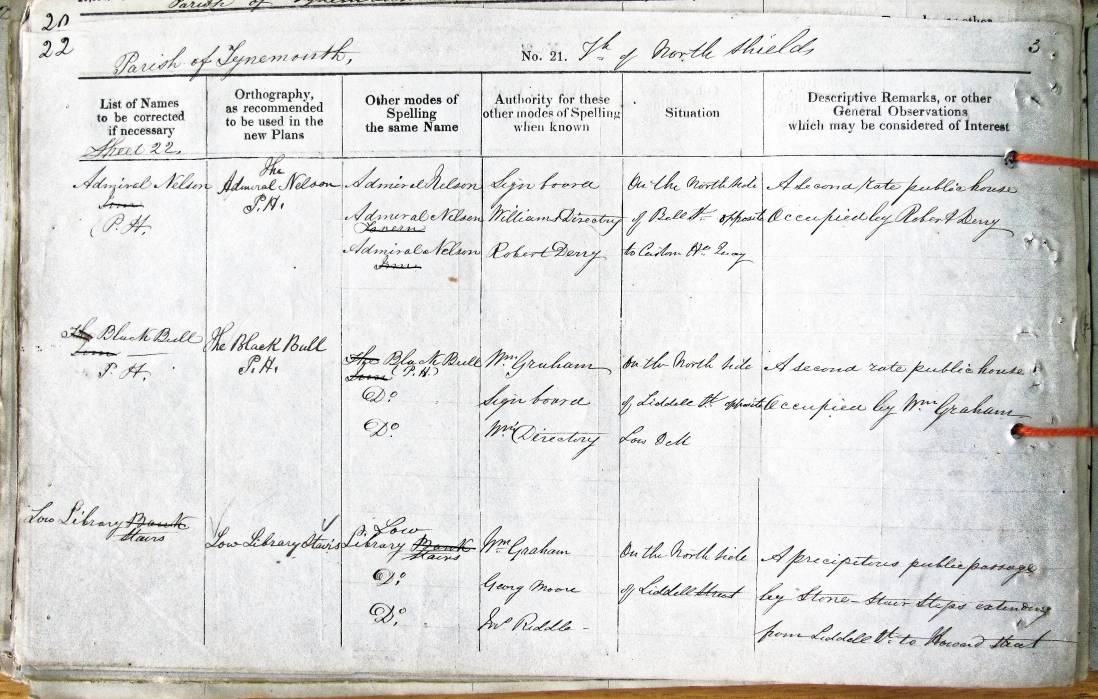 20
22
Parish of Tynemouth,
No. 21. Th of North Shields
3
List of Names
to be corrected
if necessary
Orthography,
as recommended
to be used in the
new Plans
Other modes of
Spelling
the same Name
Authority for these
other modes of Spelling
when known
Situation
Descriptive Remarks, or other
General Observations
which may be considered of Interest
Sheet 22.
Admiral Nelson
Inn
P.H.
The
Admiral Nelson
P.H.
Admiral Nelson
Admiral Nelson
Tavern
Admiral Nelson
Inn
Sign board
Williams Directory
Robert Derry
On the North side
of Bell St. opposite
to Custom Ho. Quay
A second rate public house
Occupied by Robert Derry
The Black Bull
Inn
P.H.
The Black Bull
P.H.
The Black Bull
Inn (P.H.)
Do.
Do.
Wm. Graham
Sign board
Wms. Directory
On the North side
of Liddell St. opposite
Low
A second rate public house
Occupied by Wm. Graham
Low Library Bank
Stairs
Low Library Stairs
Low
Library Bank
Stairs
Do.
Do.
Wm. Graham
Georg Moore
Jno. Riddle
On the North side
of Liddell Street
A precipitous public passage
by Stone Stair Steps extending
from Liddell St. to Howard Street